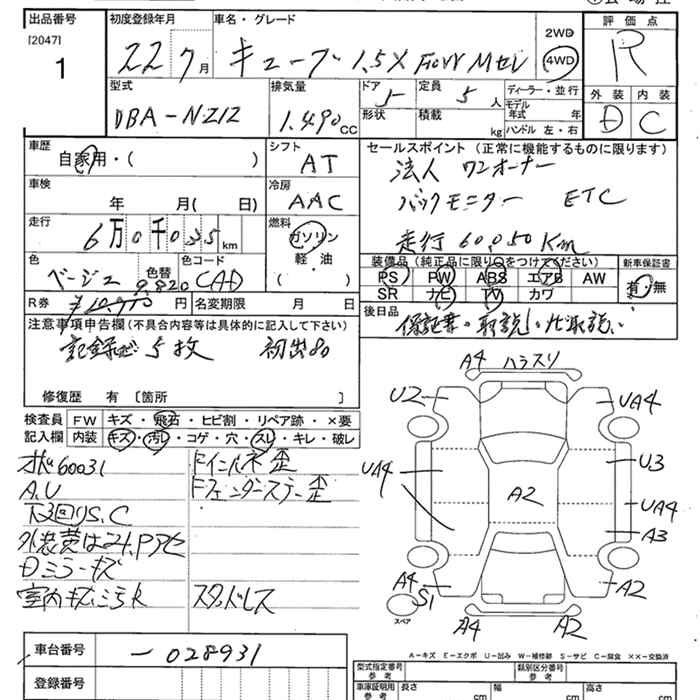 出品番号 初度登録年月 車名・グレード 2WD 評価点
[2047]
1 22 7月 キューブ 1.5X FOUR Mセレ 4WD R
型式 排気量 ドア 定員 ディーラー・並行 外装 内装
DBA-NZ12 1.490cc 5 5人 モデル年式 年
形状 積載 kg ハンドル 左・右 D C
車歴 シフト セールスポイント(正常に機能するものに限ります)
自家用・( ) AT 法人 ワンオーナー
車検 冷房 バックモニター ETC
年 月( 日) AAC
走行 燃料 走行 60,050Km
6万0千035km ガソリン
軽・油
( )
色 色替 色コード 装備品(純正品に限り○をつけてください) 新車保証書
ベージュ CAD PS PW ABS エアB AW 有・無
R券 9,820 円 名変期限 月 日 SR ナビ TV カワ
注意事項申告欄(不具合内容等は具体的に記入して下さい) 後日品
記録簿5枚 保証書・取説
修復歴 有 [箇所 ]
検査員 FW キズ・飛石・ヒビ割・リペア跡・×要
記入欄 内装 キズ・汚レ・コゲ・穴・スレ・キレ・破レ
60031 ドインパネ歪
A.U ドフェンダーステー歪
下回りS.C
Dミラーキズ
室内キズ スタッドレス
A4 ハラスリ
U2 UA4
UA4 U3
A2 UA4
A3
A4 S1 A2
スペア
A4 A2
A-キズ E-エクボ U-凹み W-補修跡 S-サビ C-腐食 ××-交換済
車台番号 -028931
登録番号
型式指定番号 参考 類別区分番号 参考
車庫証明用 参考 長さ cm 幅 cm 高さ cm